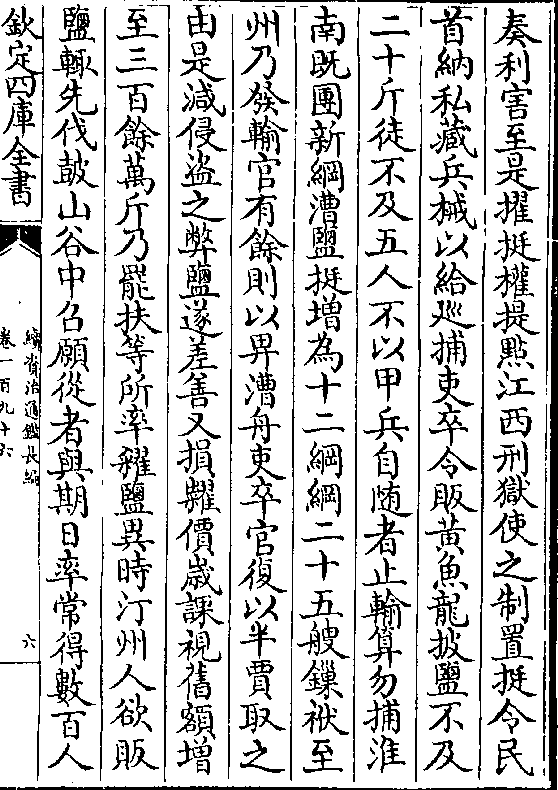 奏利害至是擢挺權提點江西刑獄使之制置挺令民
首納私藏兵械以給巡捕吏卒令販黄魚龍披鹽不及
二十斤徒不及五人不以甲兵自随者止輸算勿捕淮
南既團新綱漕鹽挺增為十二綱綱二十五艘鏁栿至
州乃發輸官有餘則以畀漕舟吏卒官復以半賈取之
由是減侵盗之弊鹽遂差善又損糴價歳課視舊額增
至三百餘萬斤乃罷扶等所率糴鹽異時汀州人欲販
鹽輒先伐鼓山谷中召願從者與期日率常得數百人
欽定四庫全書
續資治通鑑長編
卷一百九十六
六